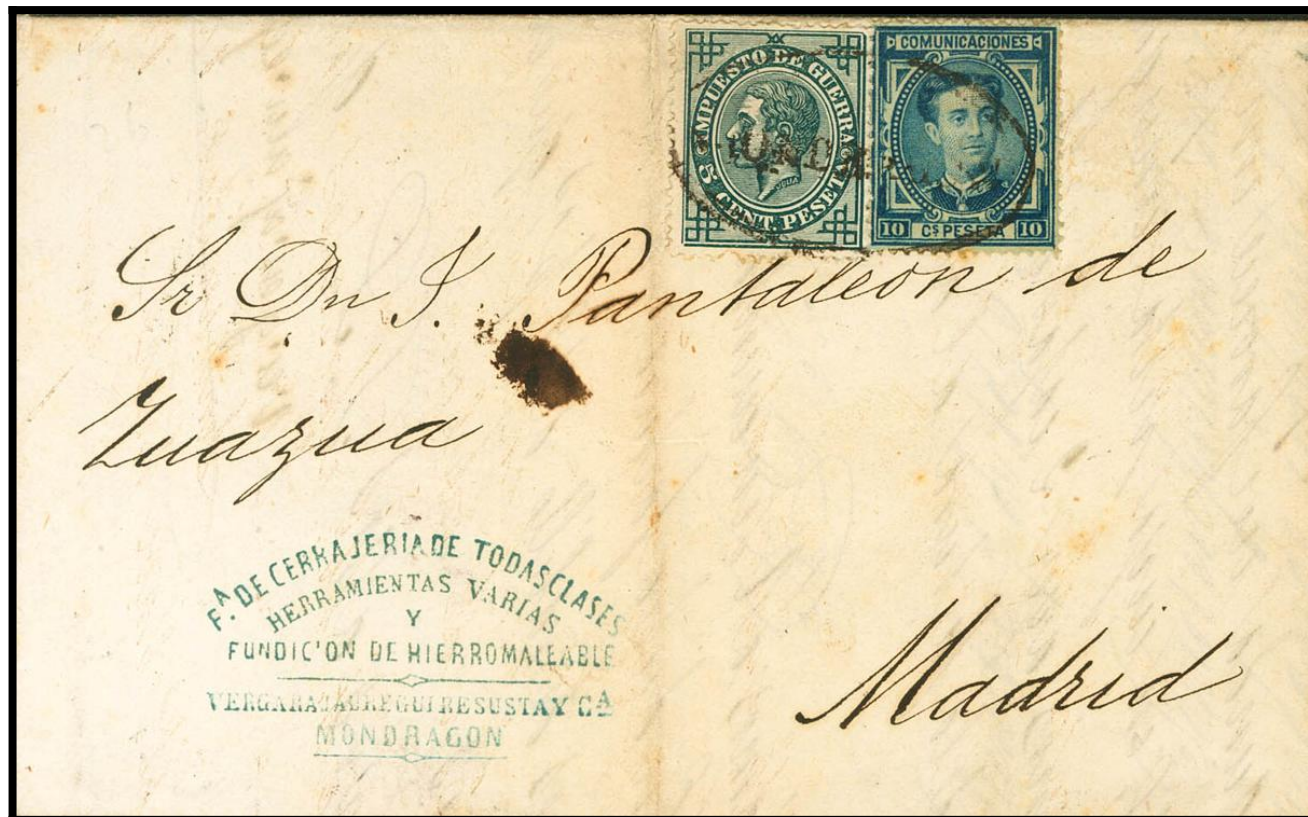 IMPUESTO DE GUERRA
5 CENT. PESETA
COMUNICACIONES
10 Cs PESETA 10
Sr Dn J. Pantaleon de
Zuazua
Madrid
F.A DE CERRAJERIA DE TODAS CLASES
HERRAMIENTAS VARIAS
Y
FUNDICION DE HIERRO MALEABLE
VERGARAJAUREGUI RESUSTA Y CA
MONDRAGON